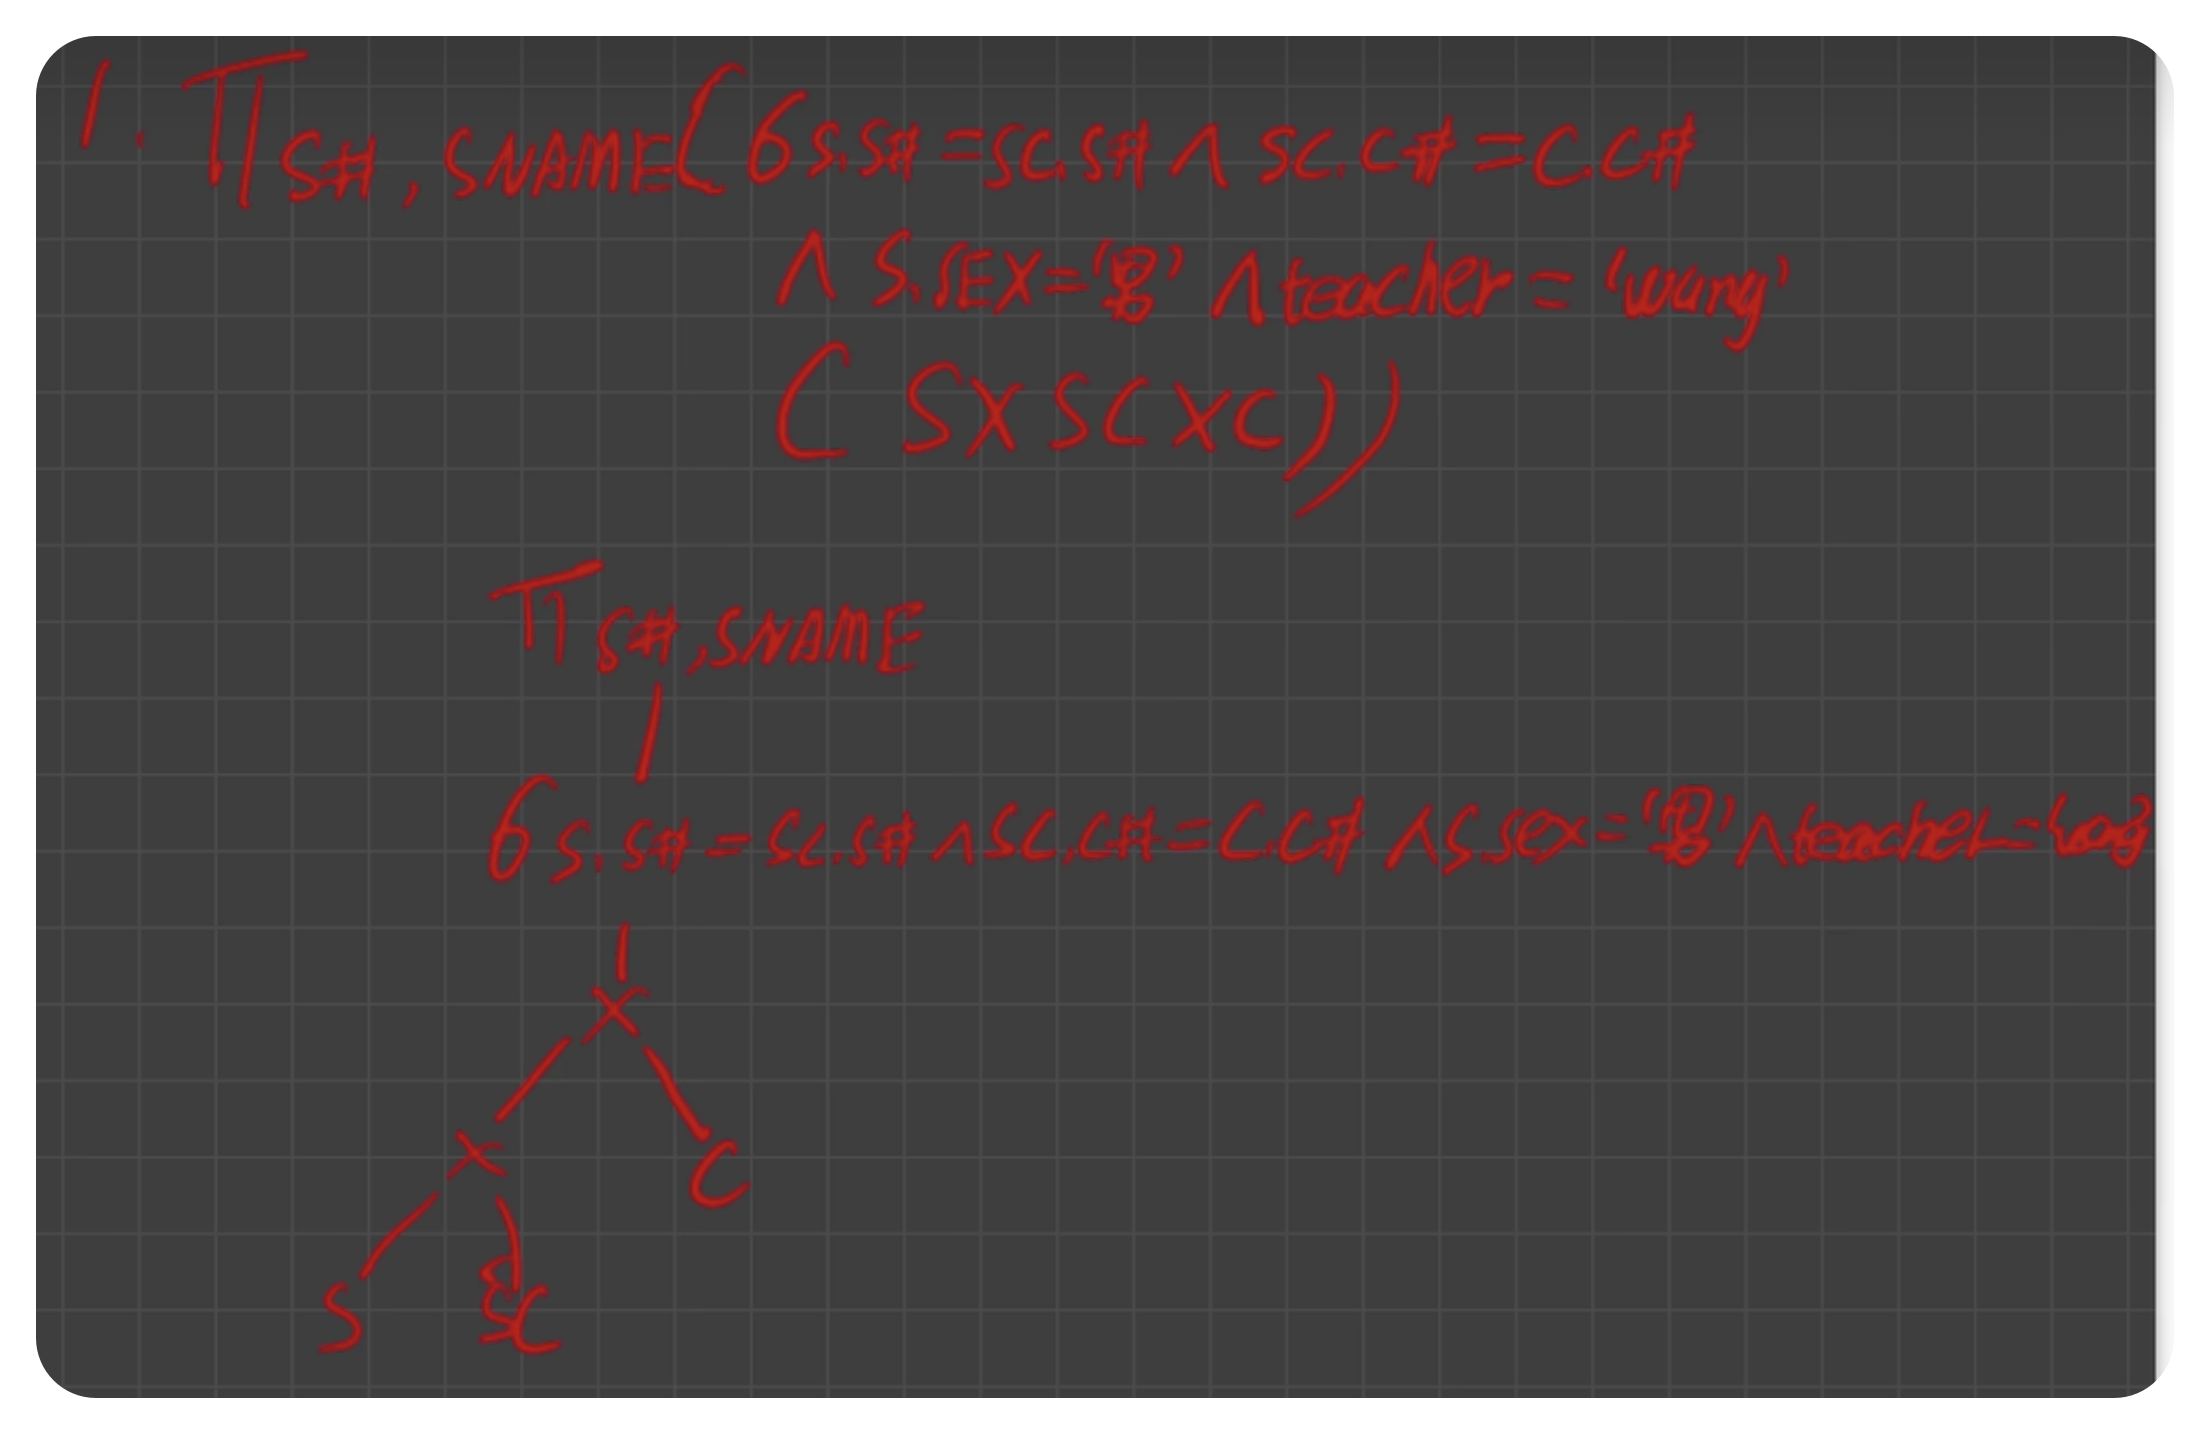 1. π S#, SNAME(σ S.S# = SC.S# ∧ SC.C# = C.C#
∧ S.SEX = '男' ∧ teacher = 'wang'
( S X SC X C ))
π S#, SNAME
σ S.S# = SC.S# ∧ SC.C# = C.C# ∧ S.sex = '男' ∧ teacher =
X
X
C
S
SC